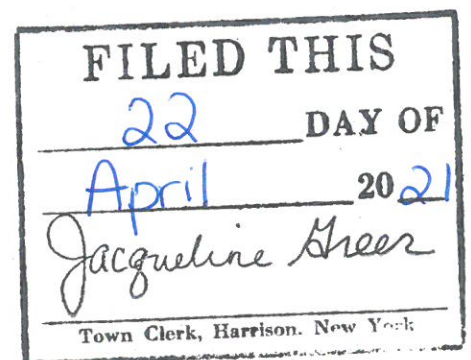 FILED THIS
22 DAY OF
April 2021
Jacqueline Greer
Town Clerk, Harrison. New York